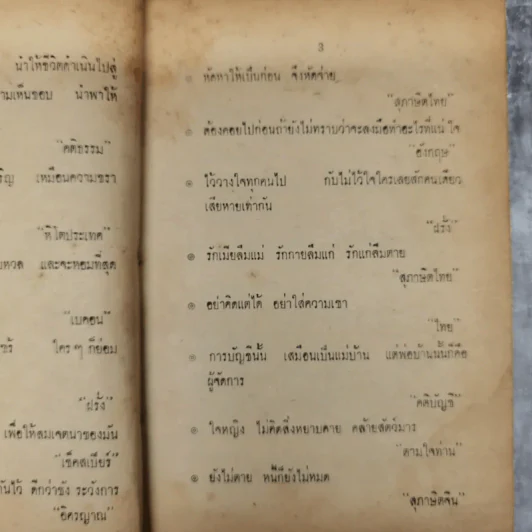 นำให้ชีวิตดำเนินไปสู่
ามเห็นชอบ นำพาให้
"คติธรรม"
ริญ เหมือนความชรา
"หิโตประเทศ"
และจะหอมที่สุด
"เบคอน"
ใคร ๆ ก็ย่อม
"ฝรั่ง"
เพื่อให้สมเจตนาของมัน
"เช็คสเปียร์"
กันไว้ ดีกว่าขัง ระวังการ
"อิศรญาณ"
3
๏ หัดหาให้เป็นก่อน จึงหัดจ่าย
"สุภาษิตไทย"
๏ ต้องคอยไปก่อนถ้ายังไม่ทราบว่าจะลงมือทำอะไรที่แน่ใจ
"อังกฤษ"
๏ ไว้วางใจทุกคนไป กับไม่ไว้ใจใครเลยสักคนเดียว
เสียหายเท่ากัน
"ฝรั่ง"
๏ รักเมียลืมแม่ รักกายลืมแก่ รักแก่ลืมตาย
"สุภาษิตไทย"
๏ อย่าคิดแต่ได้ อย่าใส่ความเขา
"ไทย"
๏ การบัญชีนั้น เสมือนเป็นแม่บ้าน แต่พ่อบ้านนั้นก็คือ
ผู้จัดการ
"คติบัญชี"
๏ ใจหญิง ไม่คิดสิ่งหยาบคาย คล้ายสัตว์มาร
"ตามใจท่าน"
๏ ยังไม่ตาย หนี้ก็ยังไม่หมด
"สุภาษิตจีน"